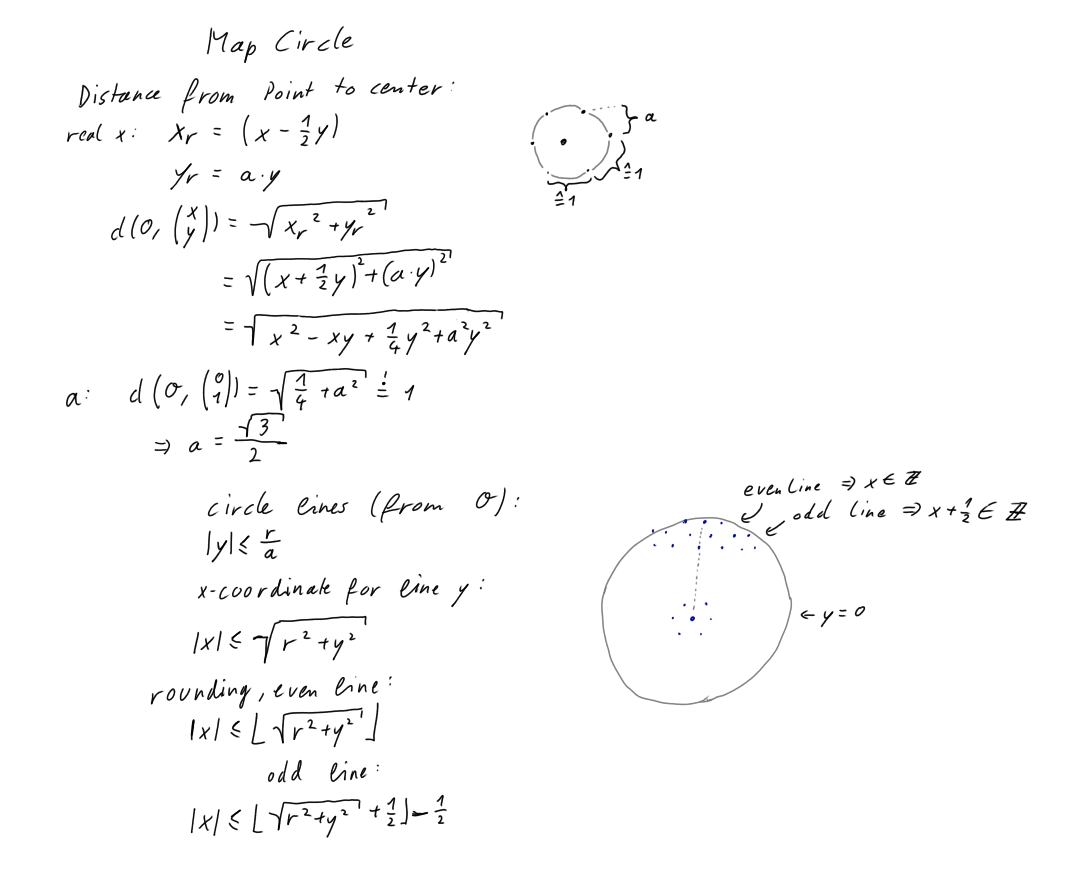 Map Circle
Distance from Point to center:
real x: xᵣ = (x - 1/2 y)
yᵣ = a·y
a
≙1
≙1
d(0, (x y)) = √(xᵣ² + yᵣ²)
= √((x + 1/2 y)² + (a·y)²)
= √(x² - xy + 1/4 y² + a²y²)
a: d(0, (0 1)) = √(1/4 + a²) =! 1
⇒ a = √3/2
circle lines (from 0):
|y| ≤ r/a
x-coordinate for line y:
|x| ≤ √(r² + y²)
rounding, even line:
|x| ≤ ⌊√(r² + y²)⌋
odd line:
|x| ≤ ⌊√(r² + y²) + 1/2⌋ - 1/2
even line ⇒ x ∈ ℤ
odd line ⇒ x + 1/2 ∈ ℤ
← y = 0